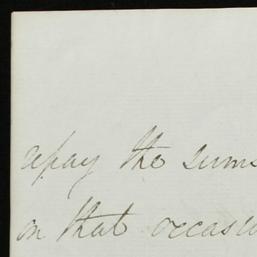 repay the sums
on that occasio